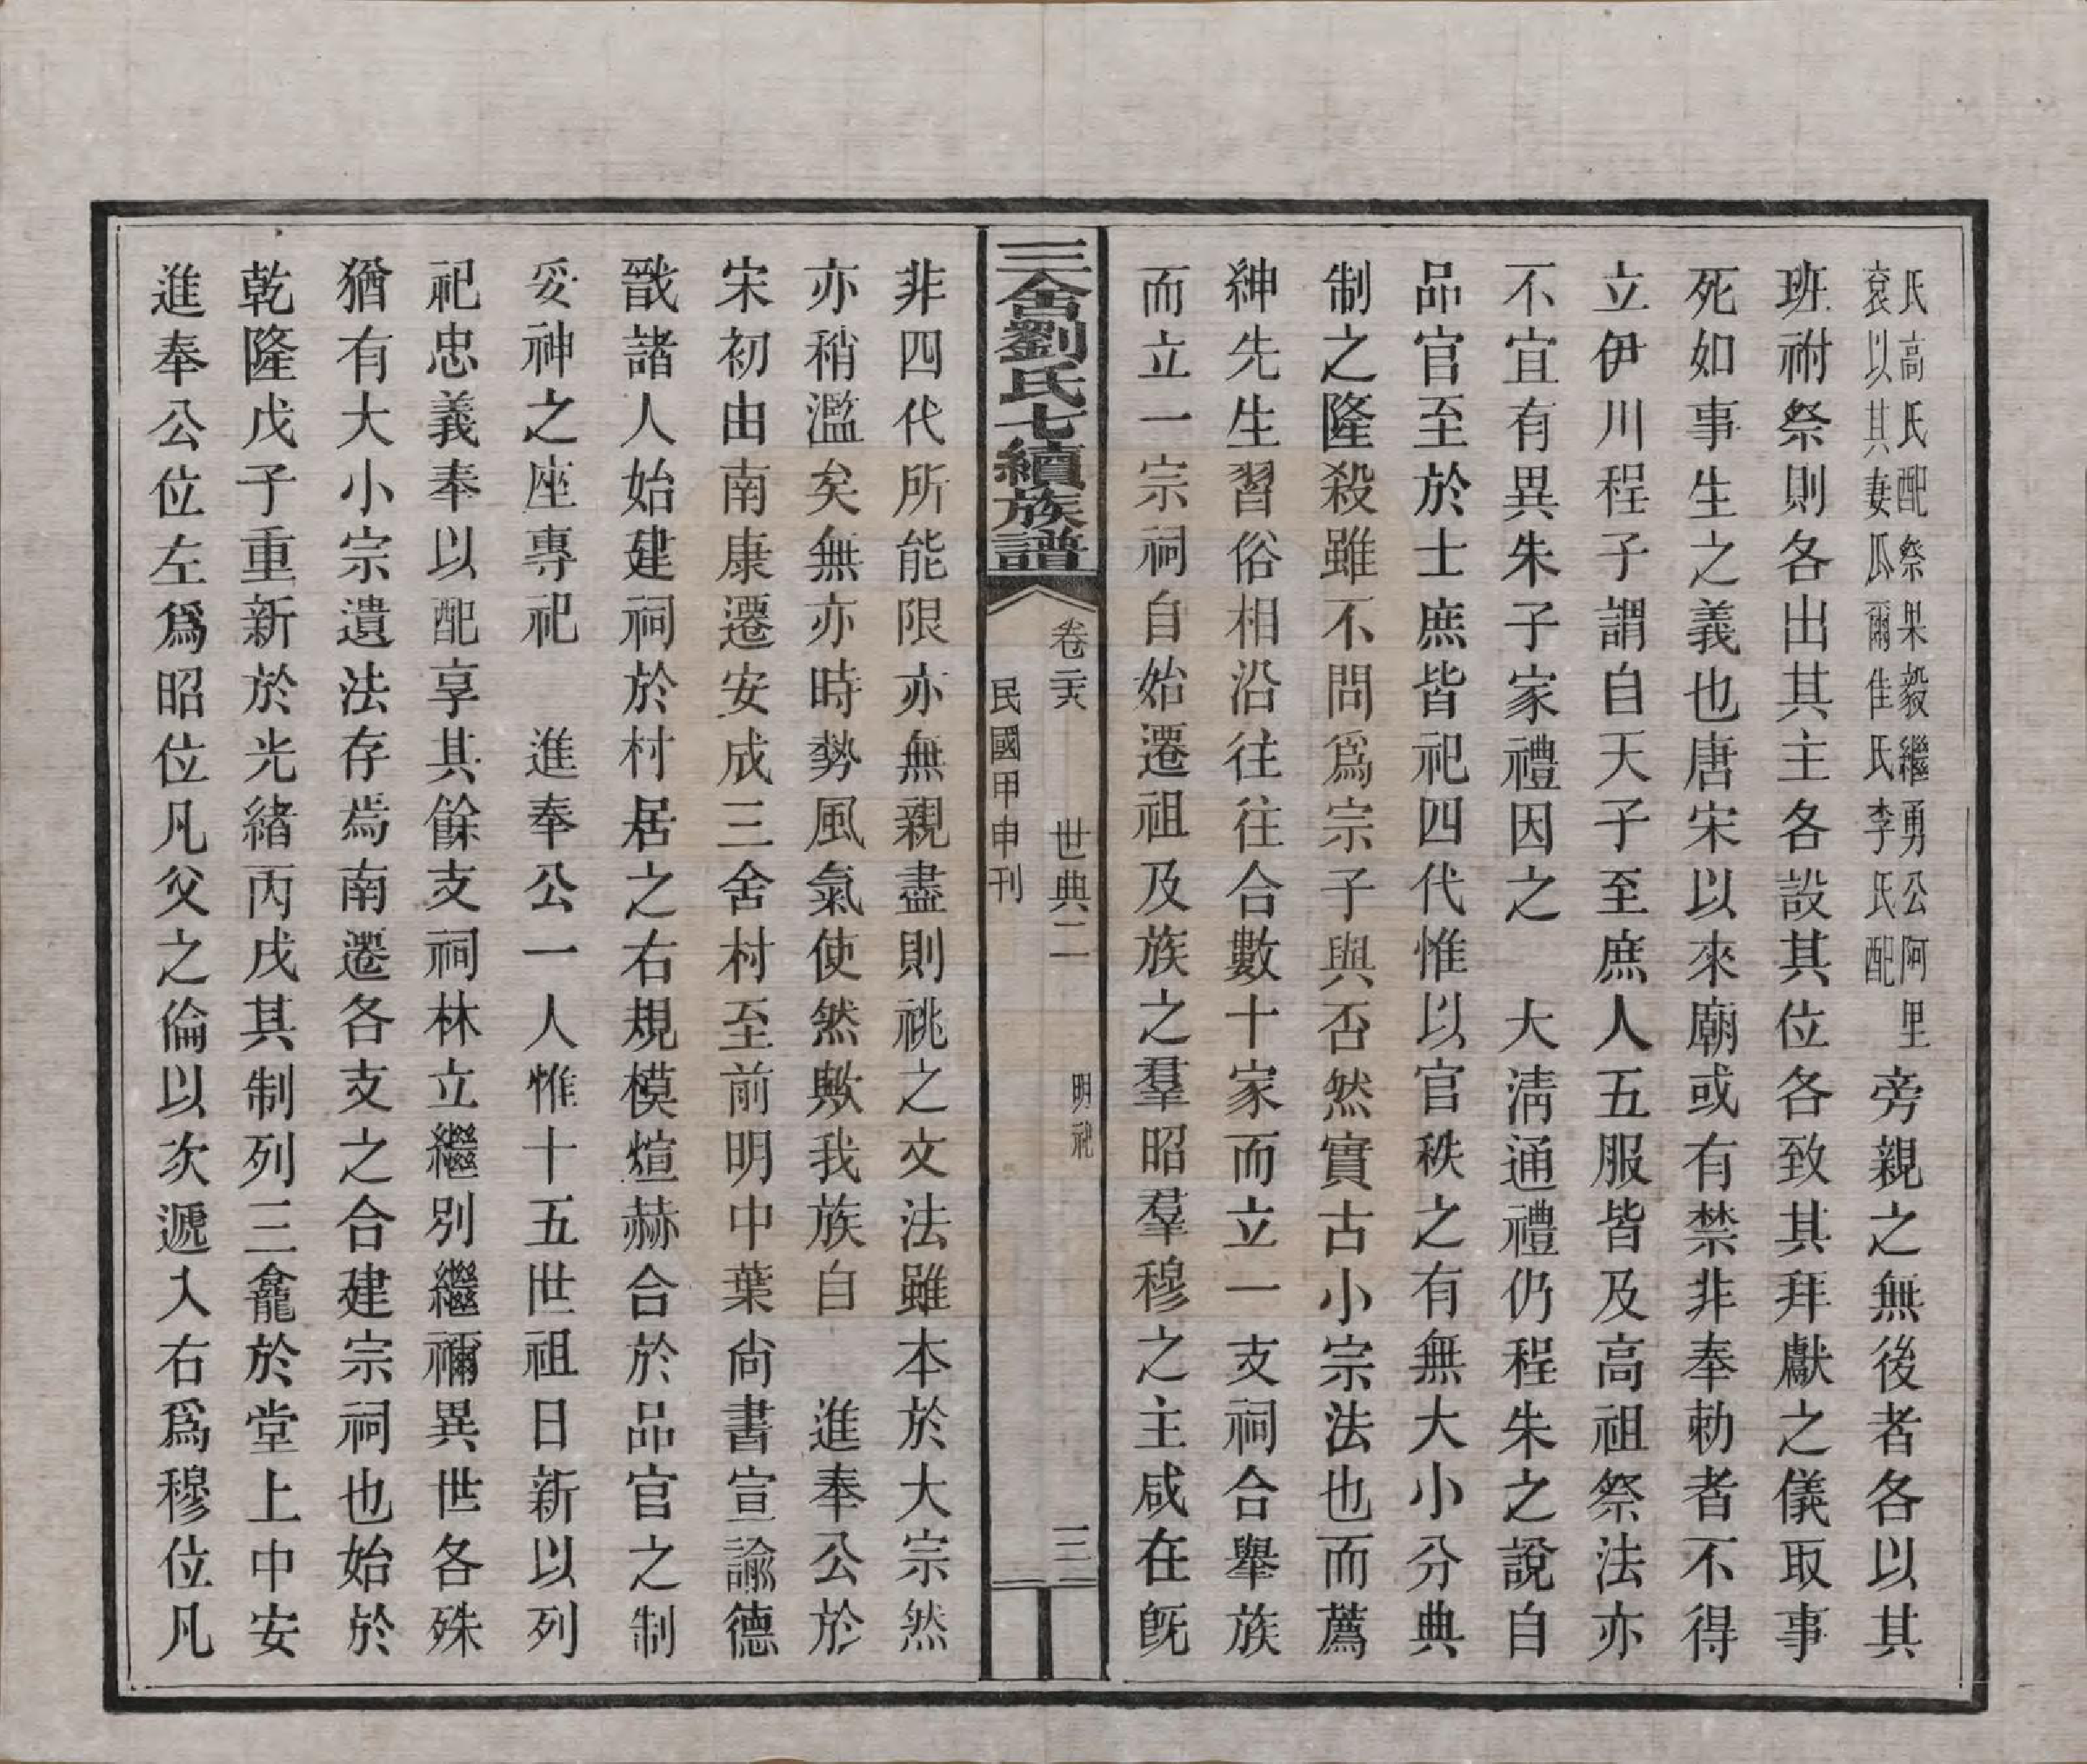 氏高氏配祭果毅繼勇公阿里
袞以其妻瓜爾佳氏李氏配
旁親之無後者各以其
班祔祭則各出其主各設其位各致其拜獻之儀取事
死如事生之義也唐宋以來廟或有禁非奉勅者不得
立伊川程子謂自天子至庶人五服皆及高祖祭法亦
不宜有異朱子家禮因之　大淸通禮仍程朱之說自
品官至於士庶皆祀四代惟以官秩之有無大小分典
制之隆殺雖不問爲宗子與否然實古小宗法也而薦
紳先生習俗相沿往往合數十家而立一支祠合舉族
而立一宗祠自始遷祖及族之羣昭羣穆之主咸在旣
三舍劉氏七續族譜
卷二六　世典二　明祀　三
民國甲申刊
非四代所能限亦無親盡則祧之文法雖本於大宗然
亦稍濫矣無亦時勢風氣使然歟我族自　進奉公於
宋初由南康遷安成三舍村至前明中葉尙書宣諭德
戩諸人始建祠於村居之右規模煊赫合於品官之制
妥神之座專祀　進奉公一人惟十五世祖日新以列
祀忠義奉以配享其餘支祠林立繼別繼禰異世各殊
猶有大小宗遺法存焉南遷各支之合建宗祠也始於
乾隆戊子重新於光緒丙戌其制列三龕於堂上中安
進奉公位左爲昭位凡父之倫以次遞入右爲穆位凡